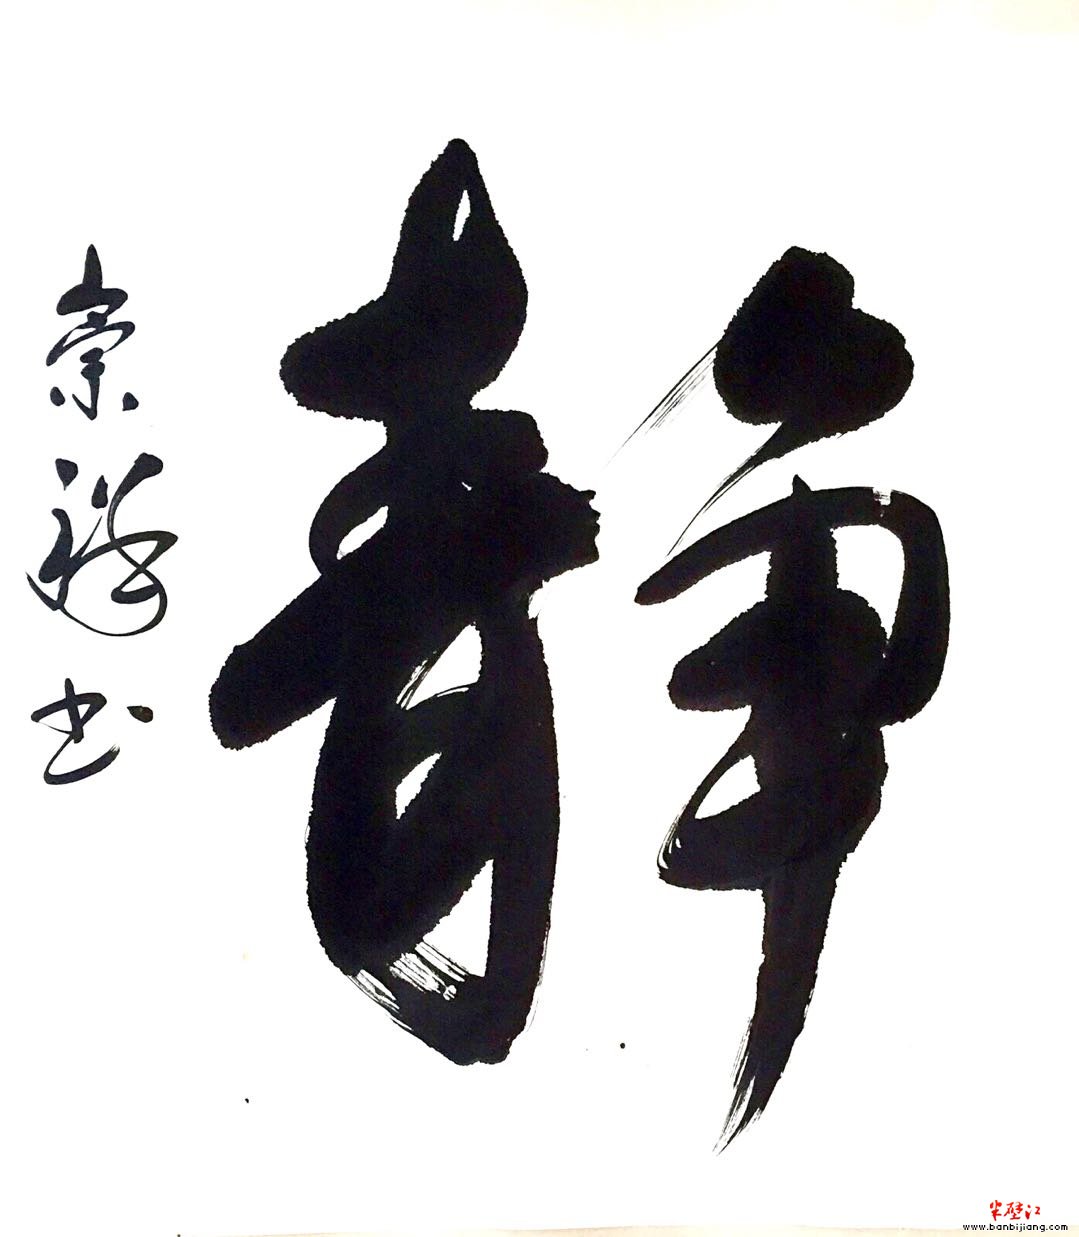 静
崇祥书
半壁江
www.banbijiang.com